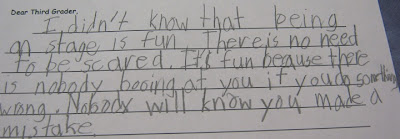 Dear Third Grader,
I didn't know that being
on stage is fun. There is no need
to be scared. It's fun because there
is nobody booing at you if you do something
wrong. Nobody will know you made a
mistake